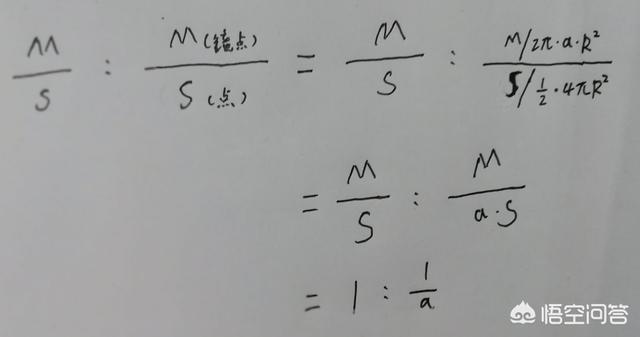 M/S : M(锚点)/S(点) = M/S : (M/2π·a·R²)/(S/½·4πR²)
= M/S : M/a·S
= 1 : 1/a
悟空问答